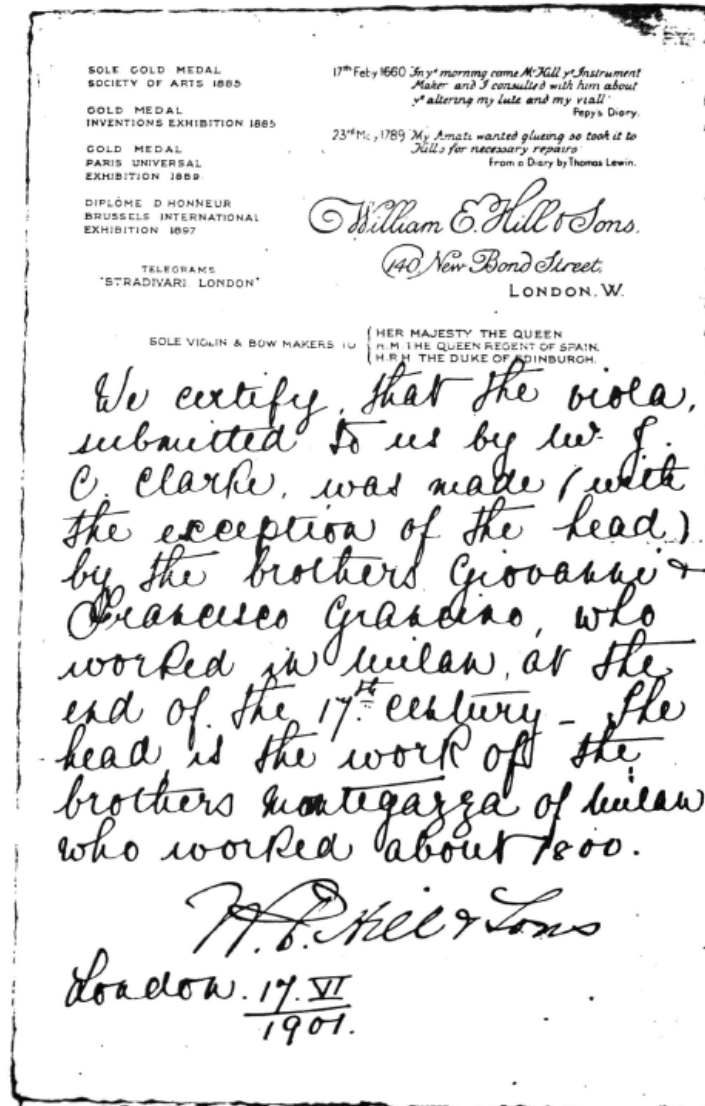 SOLE GOLD MEDAL
SOCIETY OF ARTS 1885
GOLD MEDAL
INVENTIONS EXHIBITION 1885
GOLD MEDAL
PARIS UNIVERSAL
EXHIBITION 1889
DIPLÔME D HONNEUR
BRUSSELS INTERNATIONAL
EXHIBITION 1897
TELEGRAMS
"STRADIVARI. LONDON"
17th Feby 1660 In ye morning came Mr Hill ye Instrument
Maker and I consulted with him about
ye altering my lute and my viall
Pepys Diary.
23rd May, 1789 My Amati wanted glueing so took it to
Hills for necessary repairs
From a Diary by Thomas Lewin.
William E. Hill & Sons.
140, New Bond Street,
LONDON. W.
SOLE VIOLIN & BOW MAKERS TO
HER MAJESTY THE QUEEN
H.M. THE QUEEN REGENT OF SPAIN.
H.R.H THE DUKE OF EDINBURGH.
We certify, that the viola,
submitted to us by Mr. J.
C. Clarke, was made (with
the exception of the head)
by the brothers Giovanni &
Francesco Grancino, who
worked in Milan, at the
end of the 17th century – The
head is the work of the
brothers Mantegazza of Milan
who worked about 1800.
W. E. Hill & Sons
London. 17. VI
1901.